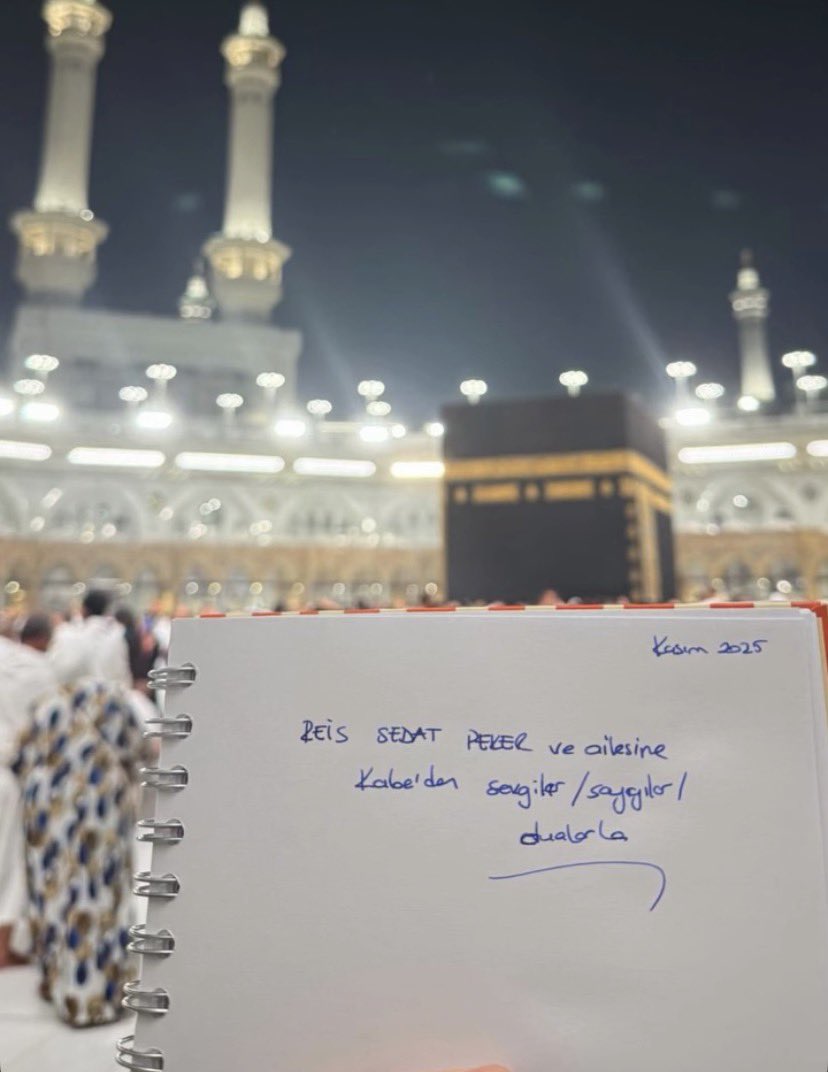 Kasım 2025
REİS SEDAT PEKER ve ailesine
Kabe'den sevgiler/saygılar/
dualarla